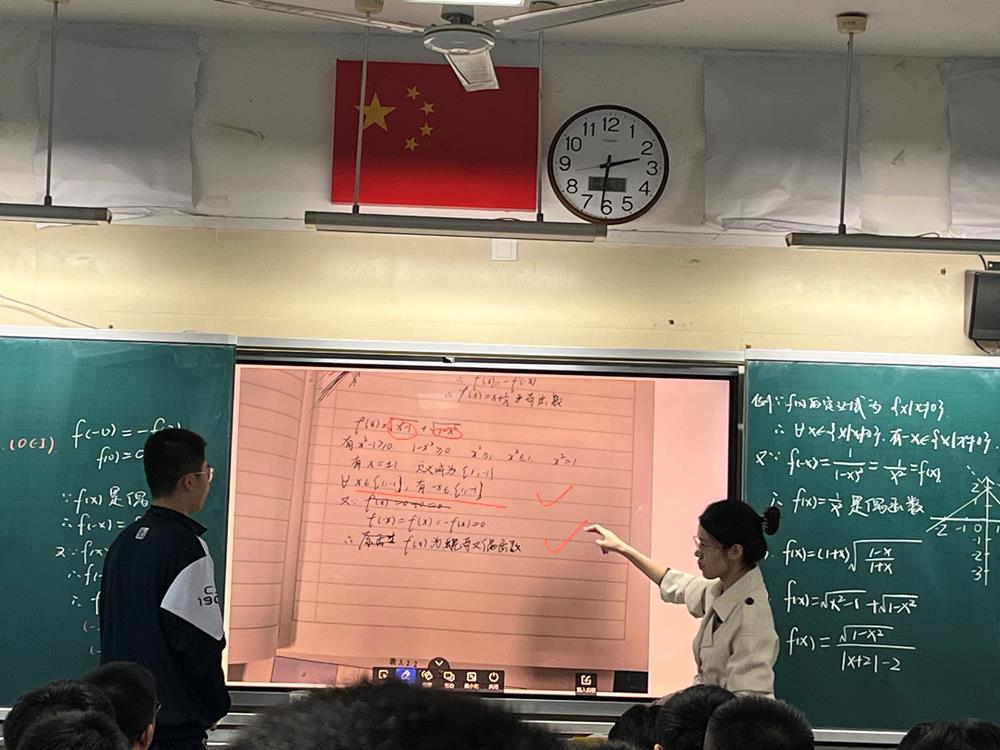 12
1
2
3
4
5
6
7
8
9
10
11
(0∈I)
f(-0)=-f(0)
f(0)=0
∵f(x)是偶
∴f(-x)=
又∵f(-x)
∴f(x)=-f(-x)
∴f(x)=x+1/x是奇函数
f(x)=√(x²-1)+√(1-x²)
有x²-1≥0 1-x²≥0 x²≥1 x²≤1 x²=1
有x=±1 定义域为{1,-1}
∀x∈{1,-1},有-x∈{1,-1}
又∵
f(-x)=f(x)=-f(x)=0
f(x)为既奇又偶函数
表3.2.2
最小化
关闭
例∵f(x)的定义域为{x|x≠0}.
∴∀x∈{x|x≠0}.有-x∈{x|x≠0}
又∵f(-x)=1/(-x)²=1/x²=f(x)
∴f(x)=1/x²是偶函数
f(x)=(1+x)√((1-x)/(1+x))
f(x)=√(x²-1)+√(1-x²)
f(x)=√(1-x²)/(|x+2|-2)
2
-2 -1 0
-1
-2
3